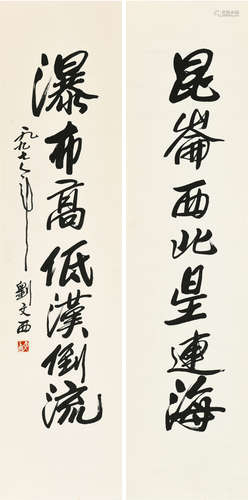 昆崙西北星連海
瀑布高低漢倒流
一九九七年
劉文西